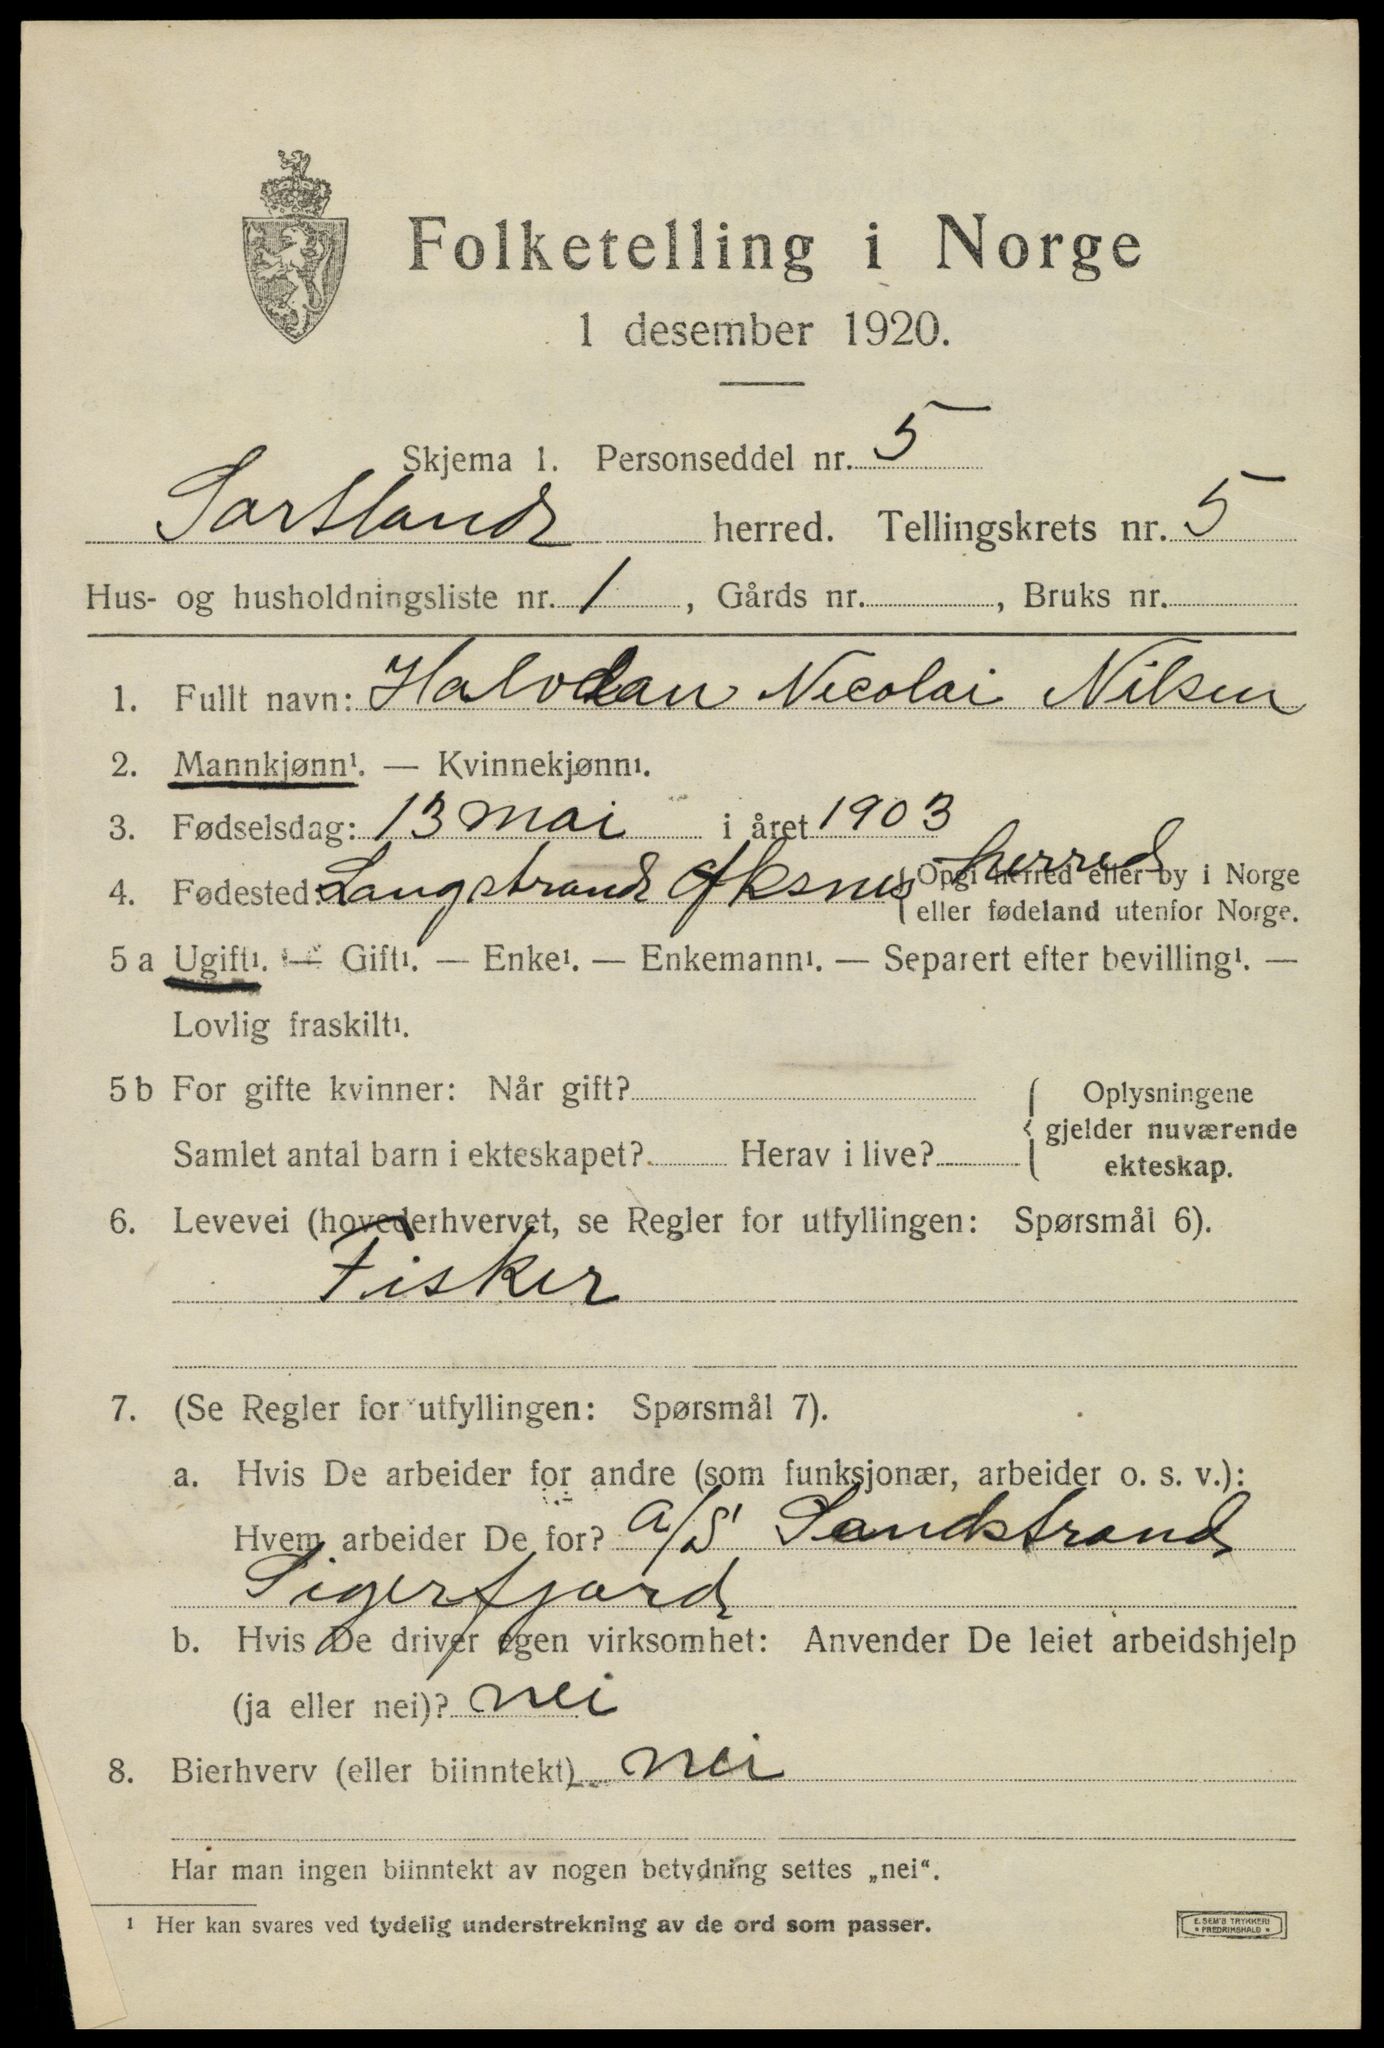 Folketelling i Norge
1 desember 1920.
Skjema 1. Personseddel nr. 5
Sortland herred. Tellingskrets nr. 5
Hus- og husholdningsliste nr. 1, Gårds nr. , Bruks nr.
1. Fullt navn: Halvdan Nicolai Nilsen
2. Mannkjønn¹. — Kvinnekjønn¹.
3. Fødselsdag: 13 mai i året 1903
4. Fødested: Langstrand Øksnes herred { Opgi herred eller by i Norge
eller fødeland utenfor Norge.
5 a Ugift¹. — Gift¹. — Enke¹. — Enkemann¹. — Separert efter bevilling¹. —
Lovlig fraskilt¹.
5 b For gifte kvinner: Når gift? { Oplysningene
gjelder nuværende
Samlet antal barn i ekteskapet? Herav i live? ekteskap.
6. Levevei (hovederhvervet, se Regler for utfyllingen: Spørsmål 6).
Fisker
7. (Se Regler for utfyllingen: Spørsmål 7).
a. Hvis De arbeider for andre (som funksjonær, arbeider o. s. v.):
Hvem arbeider De for? A/S Sandstrand
Sigerfjord
b. Hvis De driver egen virksomhet: Anvender De leiet arbeidshjelp
(ja eller nei)? nei
8. Bierhverv (eller biinntekt) nei
Har man ingen biinntekt av nogen betydning settes „nei“.
¹ Her kan svares ved tydelig understrekning av de ord som passer.
E. SEM'S TRYKKERI
* FREDRIKSHALD *